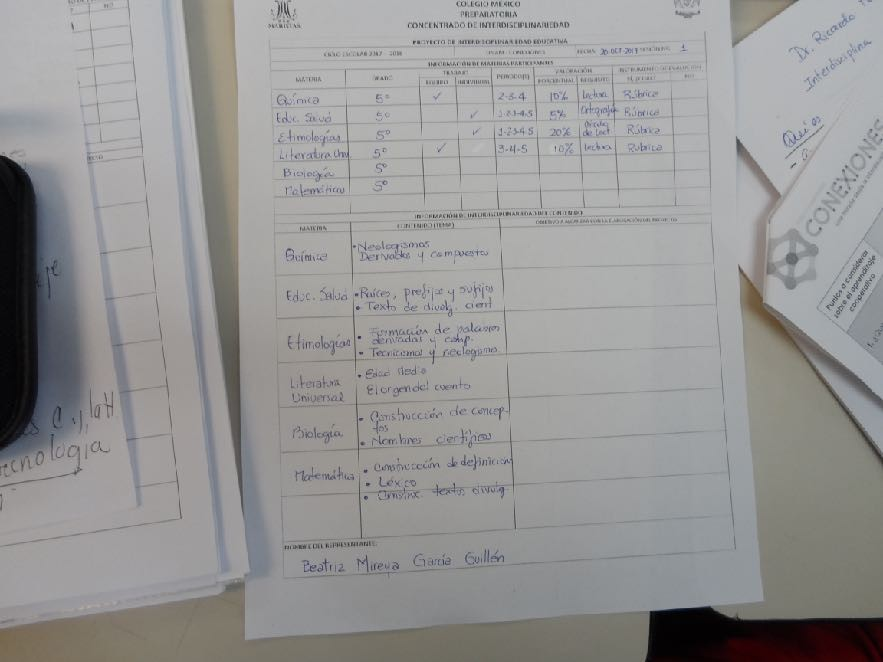 COLEGIO MÉXICO
PREPARATORIA
CONCENTRADO DE INTERDISCIPLINARIEDAD
MARISTAS
PROYECTO DE INTERDISCIPLINARIEDAD EDUCATIVA
CICLO ESCOLAR 2017 - 2018 UNAM - CONEXIONES FECHA 20-OCT-2017 1
INFORMACIÓN DE MATERIAS PARTICIPANTES
MATERIA GRADO TRABAJO PERIODO(S) VALORACIÓN INSTRUMENTO DE EVALUACIÓN
EQUIPO INDIVIDUAL PORCENTUAL REQUISITO NO
Química 5° ✓ 2-3-4 10% Lectura Rúbrica
Educ. Salud 5° ✓ 1-2-3-4-5 5% Ortografía Rúbrica
Etimologías 5° ✓ 1-2-3-4-5 20% de Lect Rúbrica
Literatura Univ. 5° ✓ 3-4-5 10% Lectura Rubrica
Biología 5°
Matemáticas 5°
INFORMACIÓN DE INTERDISCIPLINARIEDAD DEL CONTENIDO
MATERIA CONTENIDO (TEMA) OBJETIVO A ALCANZAR CON LA ELABORACIÓN DEL PROYECTO
Química • Neologismos
Derivados y compuestos
Educ. Salud • Raíces, prefijos y sufijos
• Texto de divulg. cient
Etimologías • Formación de palabras
derivadas y comp.
• Tecnicismos y neologismo
Literatura Universal • Edad Media
El orgen del cuento
Biología • Construcción de concep-
tos
• Nombres científicos
Matemática • Construcción de definicion
• Léxico
• Construc. textos divulg
NOMBRE DEL REPRESENTANTE:
Beatriz Mireya García Guillén
Dr. Ricardo
Interdisciplina
CONEXIONES
Puntos a considerar
sobre el aprendizaje
cooperativo
NO